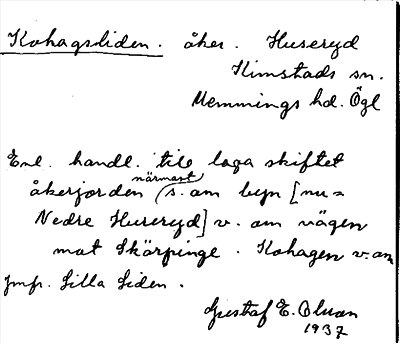 Kohagsliden. åker. Huseryd
Kimstads sn.
Memmings hd. Ögl
Enl. handl. till laga skiftet
närmast
åkerjorden s. om byn [nu=
Nedre Huseryd] v. om vägen
mot Skärpinge. Kohagen v. om
Jmfr. Lilla Liden.
Gustaf E. Olsson
1937